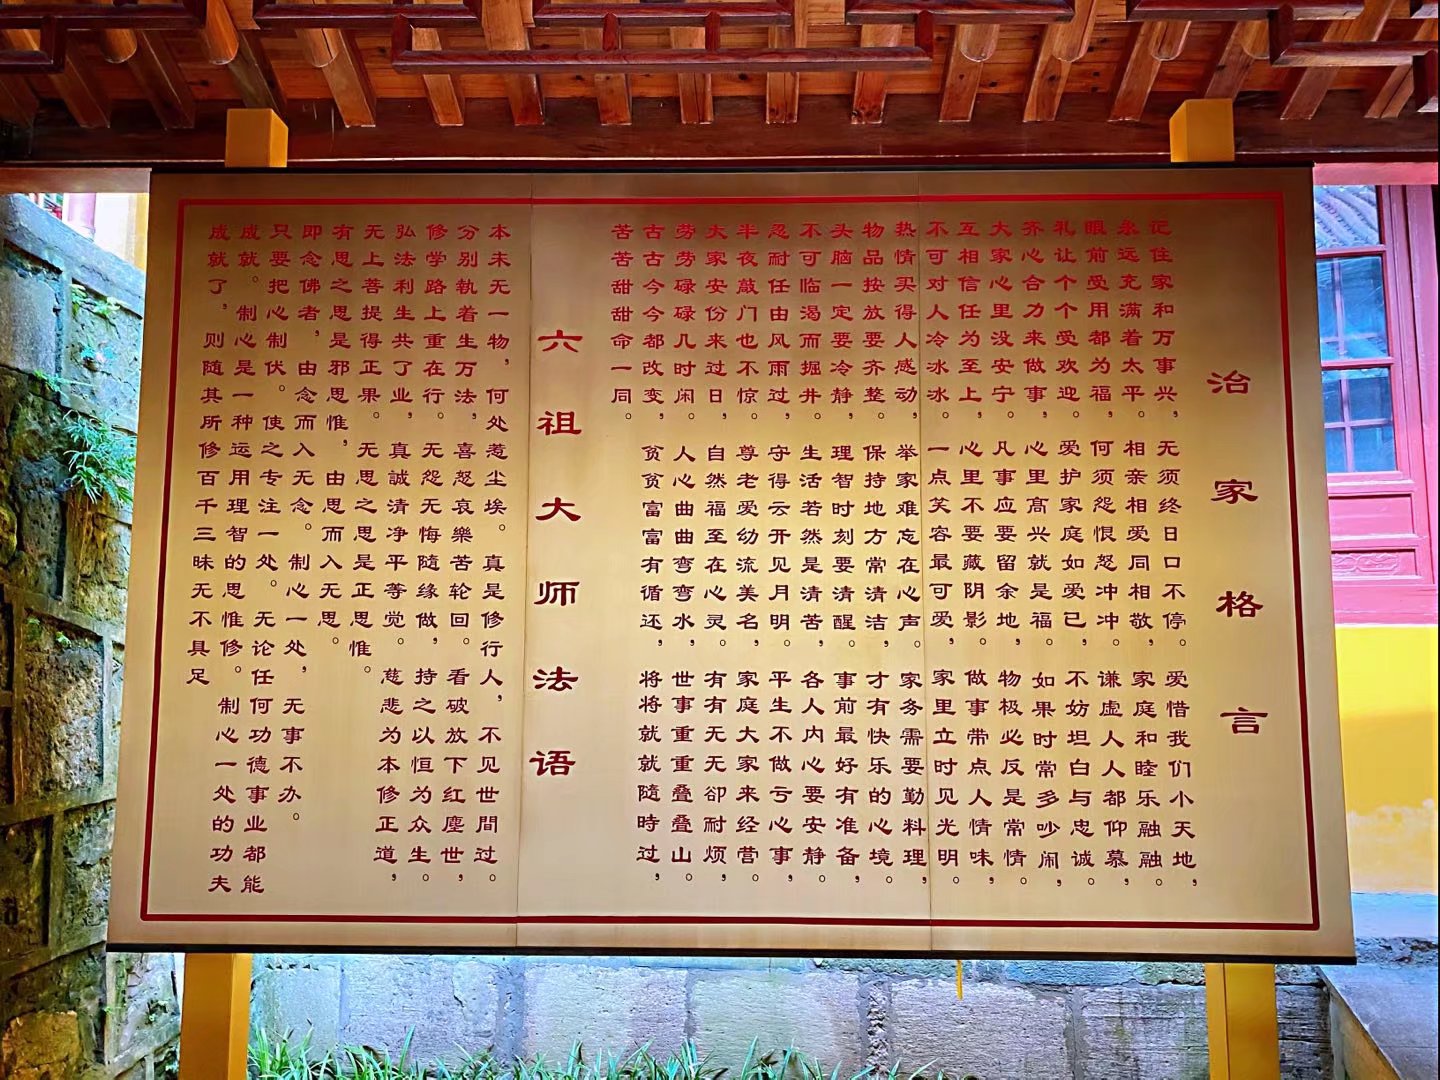 治家格言
记住家和万事兴，无须终日口不停。爱惜我们小天地，
永远充满着太平。相亲相爱同相敬，家庭和睦乐融融。
眼前受用都为福，何须怨恨怒冲冲。谦虚人人都仰慕，
礼让个个受欢迎。爱护家庭如爱己，不妨坦白与忠诚。
齐心合力来做事，心里高兴就是福。如果时常多吵闹，
大家心里没安宁。凡事应要留余地，物极必反是常情。
互相信任为至上，心里不要藏阴影。做事带点人情味，
不可对人冷冰冰。一点笑容最可爱，家里立时见光明。
热情买得人感动，举家难忘在心声。家务需要勤料理，
物品按放要齐整。保持地方常清洁，才有快乐的心境。
头脑一定要冷静，理智时刻要清醒。事前最好有准备，
不可临渴而掘井。生活若然是清苦，各人内心要安静。
忍耐任由风雨过，守得云开见月明。平生不做亏心事，
半夜敲门也不惊。尊老爱幼流美名，家庭大家来经营。
大家安份来过日，自然福至在心灵。有有无无卻耐烦，
劳劳碌碌几时闲。人心曲曲弯弯水，世事重重叠叠山。
古古今今都改变，贫贫富富有循还，将将就就隨時过，
苦苦甜甜命一同。
六祖大师法语
本未无一物，何处惹尘埃。真是修行人，不见世間过。
分别執着生万法，喜怒哀樂苦轮回。看破放下红塵世，
修学路上重在行。无怨无悔随缘做，持之以恒为众生。
弘法利生共了业，真誠清净平等觉。慈悲为本修正道，
无上菩提得正果。无思之思是正思惟。
有思之思是邪思惟，由思而入无思。
即念佛者，由念而入无念。制心一处，无事不办。
只要把心制伏。使之专注一处。无论任何功德事业都能
成就。制心是一种运用理智的思惟修。制心一处的功夫
成就了，则随其所修百千三昧无不具足